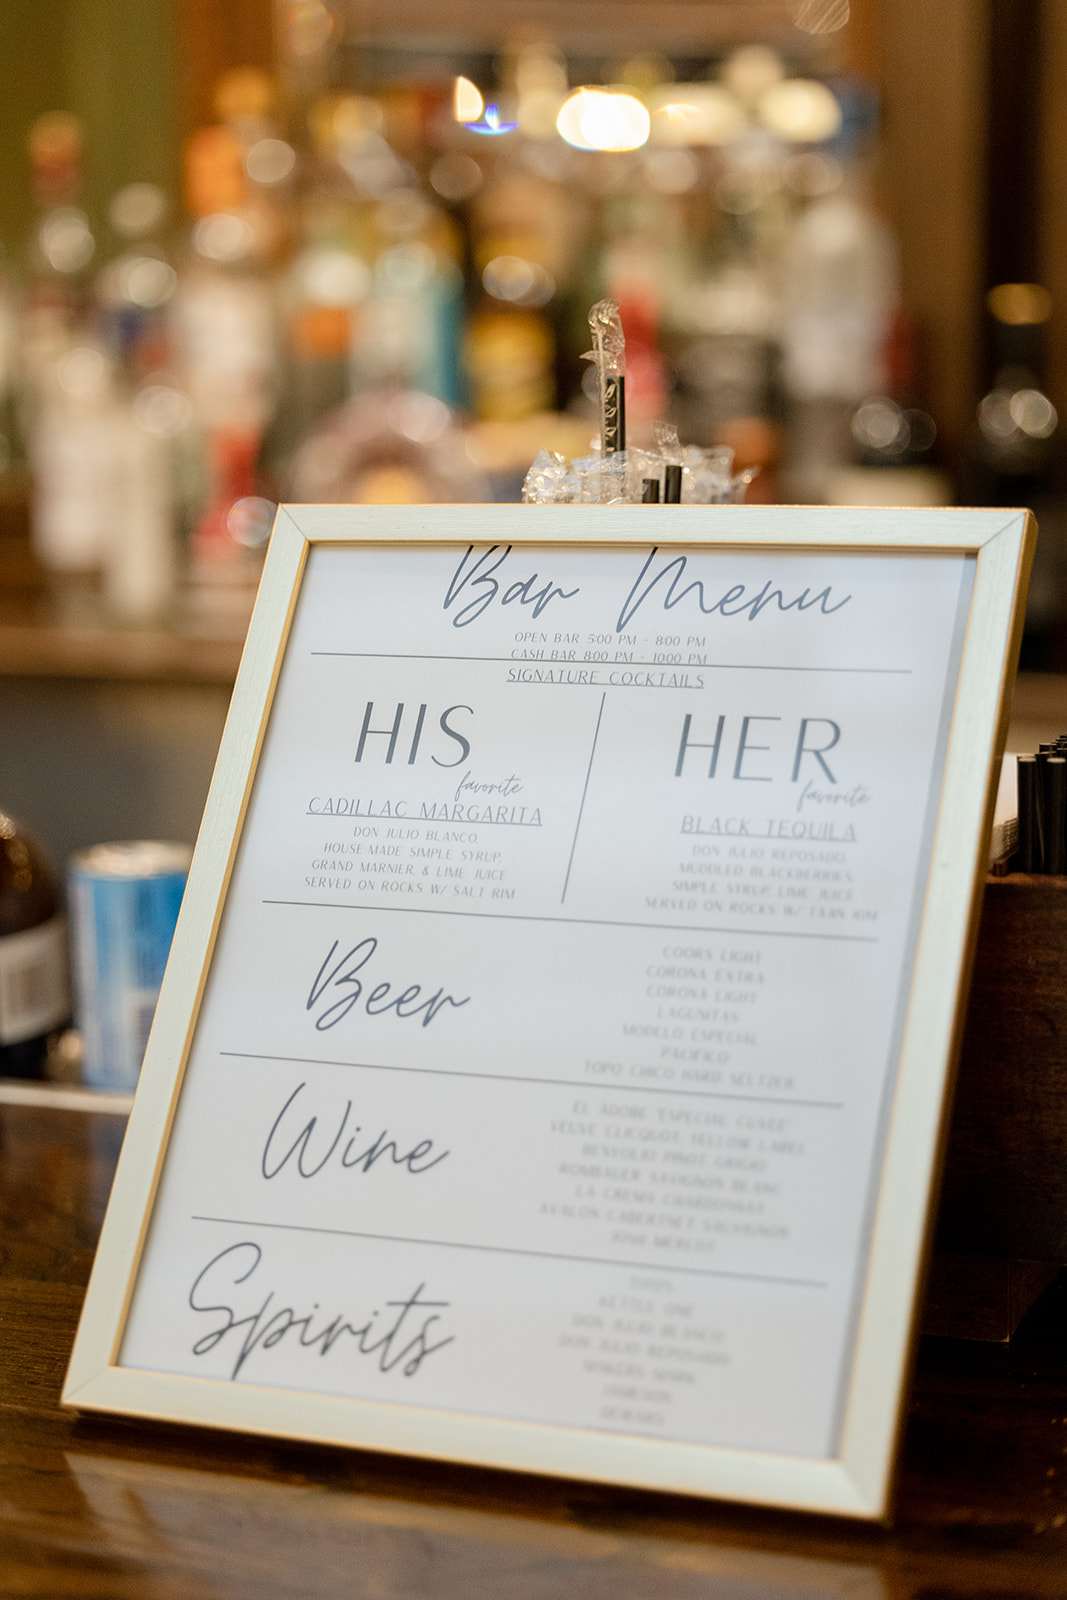 Bar Menu
OPEN BAR 5:00 PM - 8:00 PM
CASH BAR 8:00 PM - 10:00 PM
SIGNATURE COCKTAILS
HIS
favorite
CADILLAC MARGARITA
DON JULIO BLANCO,
HOUSE-MADE SIMPLE SYRUP,
GRAND MARNIER, & LIME JUICE
SERVED ON ROCKS W/ SALT RIM
HER
favorite
BLACK TEQUILA
DON JULIO REPOSADO,
MUDDLED BLACKBERRIES
SIMPLE SYRUP LIME JUICE
SERVED ON ROCKS W/ TAJIN RIM
Beer
COORS LIGHT
CORONA EXTRA
CORONA LIGHT
LAGUNITAS
MODELO ESPECIAL
PACIFICO
TOPO CHICO HARD SELTZER
Wine
EL ADOBE "ESPECIAL CUVEE"
VEUVE CLICQUOT, YELLOW LABEL
BENVOLIO PINOT GRIGIO
ROMBAUER SAVIGNON BLANC
LA CREMA CHARDONNAY
AVALON CABERTNET SAUVIGNON
JOSH MERLOT
Spirits
TITO'S
KETTLE ONE
DON JULIO BLANCO
DON JULIO REPOSADO
MAKERS MARK
JAMESON
DEWARS